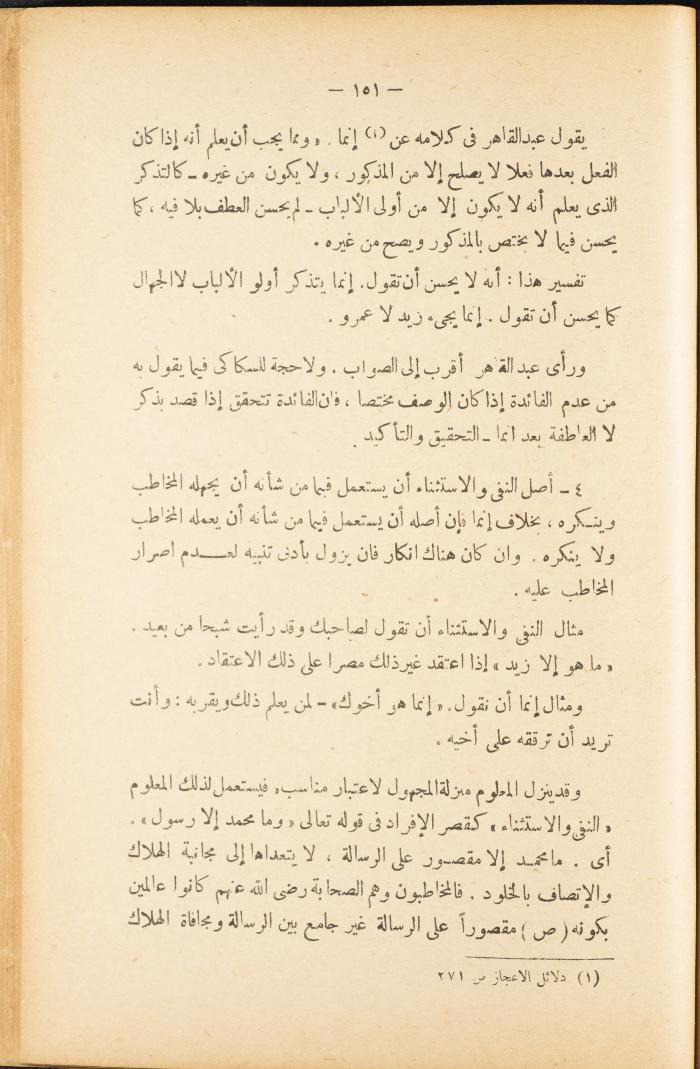 — ١٥١ —
يقول عبدالقاهر فى كلامه عن (١) إنما . « ومما يجب أن يعلم أنه إذا كان
الفعل بعدها فعلا لا يصلح إلا من المذكور ، ولا يكون من غيره - كالتذكر
الذى يعلم أنه لا يكون إلا من أولى الألباب - لم يحسن العطف بلا فيه ، كما
يحسن فيما لا يختص بالمذكور ويصح من غيره .
تفسير هذا : أنه لا يحسن أن تقول . إنما يتذكر أولو الألباب لا الجهال
كما يحسن أن تقول . إنما يجىء زيد لا عمرو .
ورأى عبد القاهر أقرب إلى الصواب . ولا حجة للسكاكى فيما يقول به
من عدم الفائدة إذا كان الوصف مختصا ، فان الفائدة تتحقق إذا قصد بذكر
لا العاطفة بعد انما - التحقيق والتأكيد .
٤ - أصل النفى والاستثناء أن يستعمل فيما من شأنه أن يجهله المخاطب
وينكره ، بخلاف إنما فإن أصله أن يستعمل فيما من شأنه أن يعمله المخاطب
ولا ينكره . وان كان هناك انكار فان يزول بأدنى تنبيه لعدم اصرار
المخاطب عليه .
مثال النفى والاستثناء أن تقول لصاحبك وقد رأيت شبحا من بعيد .
« ما هو إلا زيد » إذا اعتقد غير ذلك مصرا على ذلك الاعتقاد .
ومثال إنما أن نقول . « إنما هو أخوك » - لمن يعلم ذلك ويقر به : وأنت
تريد أن ترققه على أخيه .
وقد ينزل المعلوم منزلة المجهول لاعتبار مناسب ، فيستعمل لذلك المعلوم
« النفى والاستثناء » كقصر الإفراد فى قوله تعالى « وما محمد إلا رسول » .
أى . ما محمد إلا مقصور على الرسالة ، لا يتعداها إلى مجانبة الهلاك
والإتصاف بالخلود . فالمخاطبون وهم الصحابة رضى الله عنهم كانوا عالمين
بكونه ( ص ) مقصوراً على الرسالة غير جامع بين الرسالة ومجافاة الهلاك
(١) دلائل الاعجاز ص ٢٧١